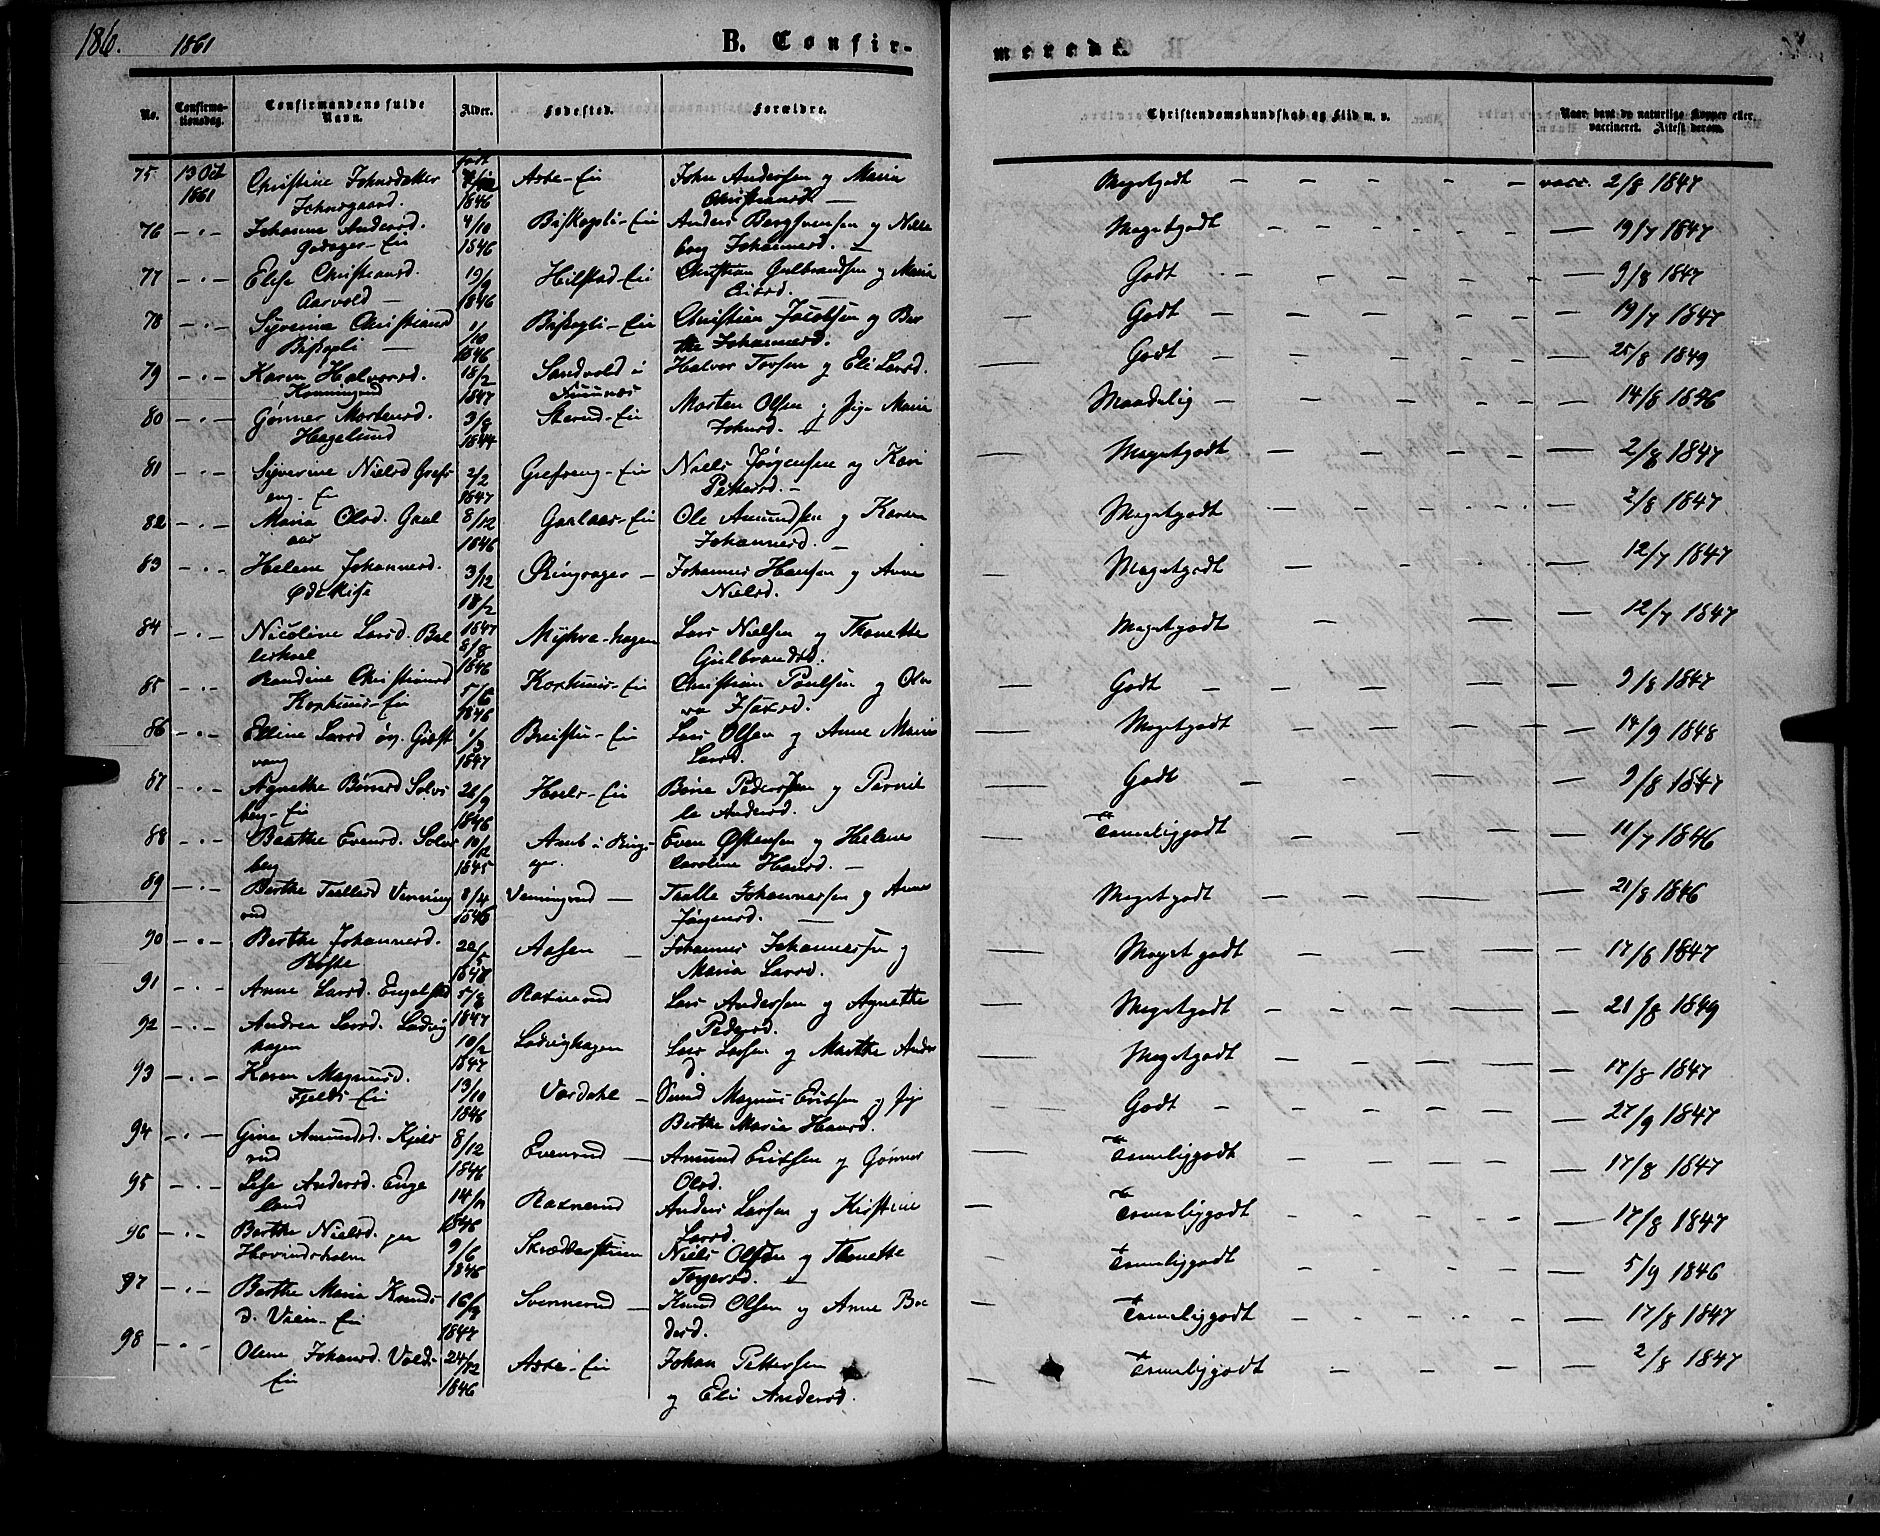 186. 1861 B. Confirmerede.
No. Confirmationsdag. Confirmandens fulde Navn. Alder. Fødested. Forældre. Christendomskundskab og Flid m. v. Naar havt de naturlige Kopper eller vaccineret. Attest derom.
75 13 Oct 1861 Christine Johnsdatter Johnsgaard. født 1846 Aste-Eie John Andersen og Maria Christiansd. — Megetgodt — vacc. 2/8 1847
76 - " - Johanne Andersd. Godager-Eie 4/10 1846 Biskopli-Eie Anders Bergsvensen og Johannesd. — Megetgodt — 19/7 1847
77 - " - Elise Christiansd. Aarvold — 19/9 1846 Hilstad-Eie Christian Gulbrandsen og Maria — Godt — 9/8 1847
78 - " - Syverine Christiansd Biskopli — 1/10 1846 Biskopli-Eie Christian Jacobsen og Berthe Johannesd. — Godt — 19/7 1847
79 - " - Karen Halvorsd. 18/2 1847 Sandvold i Halvor Torsen og Eli Larsd. — Godt — 25/8 1849
80 - " - Gønner Mortensd. Hagelund 3/8 1844 Skerud-Eie Morten Olsen og Pige Maria Johnsd. — Maadelig — 14/8 1846
81 - " - Syverine Nielsd Grefseng-Eie 2/2 1847 Grefseng-Eie Niels Jørgensen og Kari Pettersd. — Megetgodt — 2/8 1847
82 - " - Maria Olsd. Gaalaas 8/12 1846 Gaalaas-Eie Ole Amundsen og Karen Johannesd. — Megetgodt — 2/8 1847
83 - " - Helene Johannesd. Ødekise 3/12 Ringsager — Johannes Hansen og Anne Nielsd. — Megetgodt — 12/7 1847
84 - " - Nicoline Larsd. Ballishoel 18/2 1847 Myhrahagen Lars Nielsen og Thonette Gulbrandsd. Megetgodt — 12/7 1847
85 - " - Randine Christiansd Korshuus-Eie 5/6 1846 Korshuus-Eie Christian Poulsen og — Godt — 9/8 1847
86 - " - Elline Larsd 1/3 1847 Breistu-Eie Lars Olsen og Anne Marie Larsd. — Megetgodt — 14/9 1848
87 - " - Agnethe Børresd Solberg-Eie 26/9 1846 Hoels-Eie Børre Pedersen og Pernille Andersd. — Godt — 9/8 1847
88 - " - Berthe Evensd. Solberg 10/12 1845 Even Østensen og Helene Caroline Hansd. — Temmeliggodt — 11/7 1846
89 - " - Berthe Tollesd Venningrud 8/4 1846 Venningrud — Tolle Johannessen og Anne Jørgensd. — Megetgodt — 21/8 1846
90 - " - Berthe Johannesd. 22/5 Aasen — Johannes Johannessen og Maria Larsd. — Megetgodt — 17/8 1847
91 - " - Anne Larsd. 5/8 1847 Raknerud Lars Andersen og Agnethe Pedersd. — Megetgodt — 21/8 1849
92 - " - Andrea Larsd. Lodvighagen 10/2 1847 Lodvighagen Lars Larsen og Marthe Andersd. — Megetgodt — 17/8 1847
93 - " - Karen Magnusd. Fjelds-Eie 13/10 1846 Vardahl — Magnus Ericksen og Pige Berthe Maria Hansd. — Godt — 27/9 1847
94 - " - Gina Amundsd. Kjelsrud 8/12 1846 Evenrud — Amund Ericksen og Gønner Olsd. Temmeliggodt — 17/8 1847
95 - " - Lise Andersd. Engeland 1846 Raknerud Anders Larsen og Kirstine Larsd. — Temmeliggodt — 17/8 1847
96 - " - Berthe Nielsd. Hovindsholm 9/6 1846 Skrædderstuen Niels Olsen og Thonette Torgersd. — Temmeliggodt — 5/9 1846
97 - " - Berthe Maria Knudsd. Vien-Eie 16/9 1847 Svennerud — Knud Olsen og Anne — Temmeliggodt — 17/8 1847
98 - " - Oline Johansd. Volds-Eie 24/12 1846 Aste-Eie Johan Pettersen og Eli Andersd. — Temmeliggodt — 2/8 1847